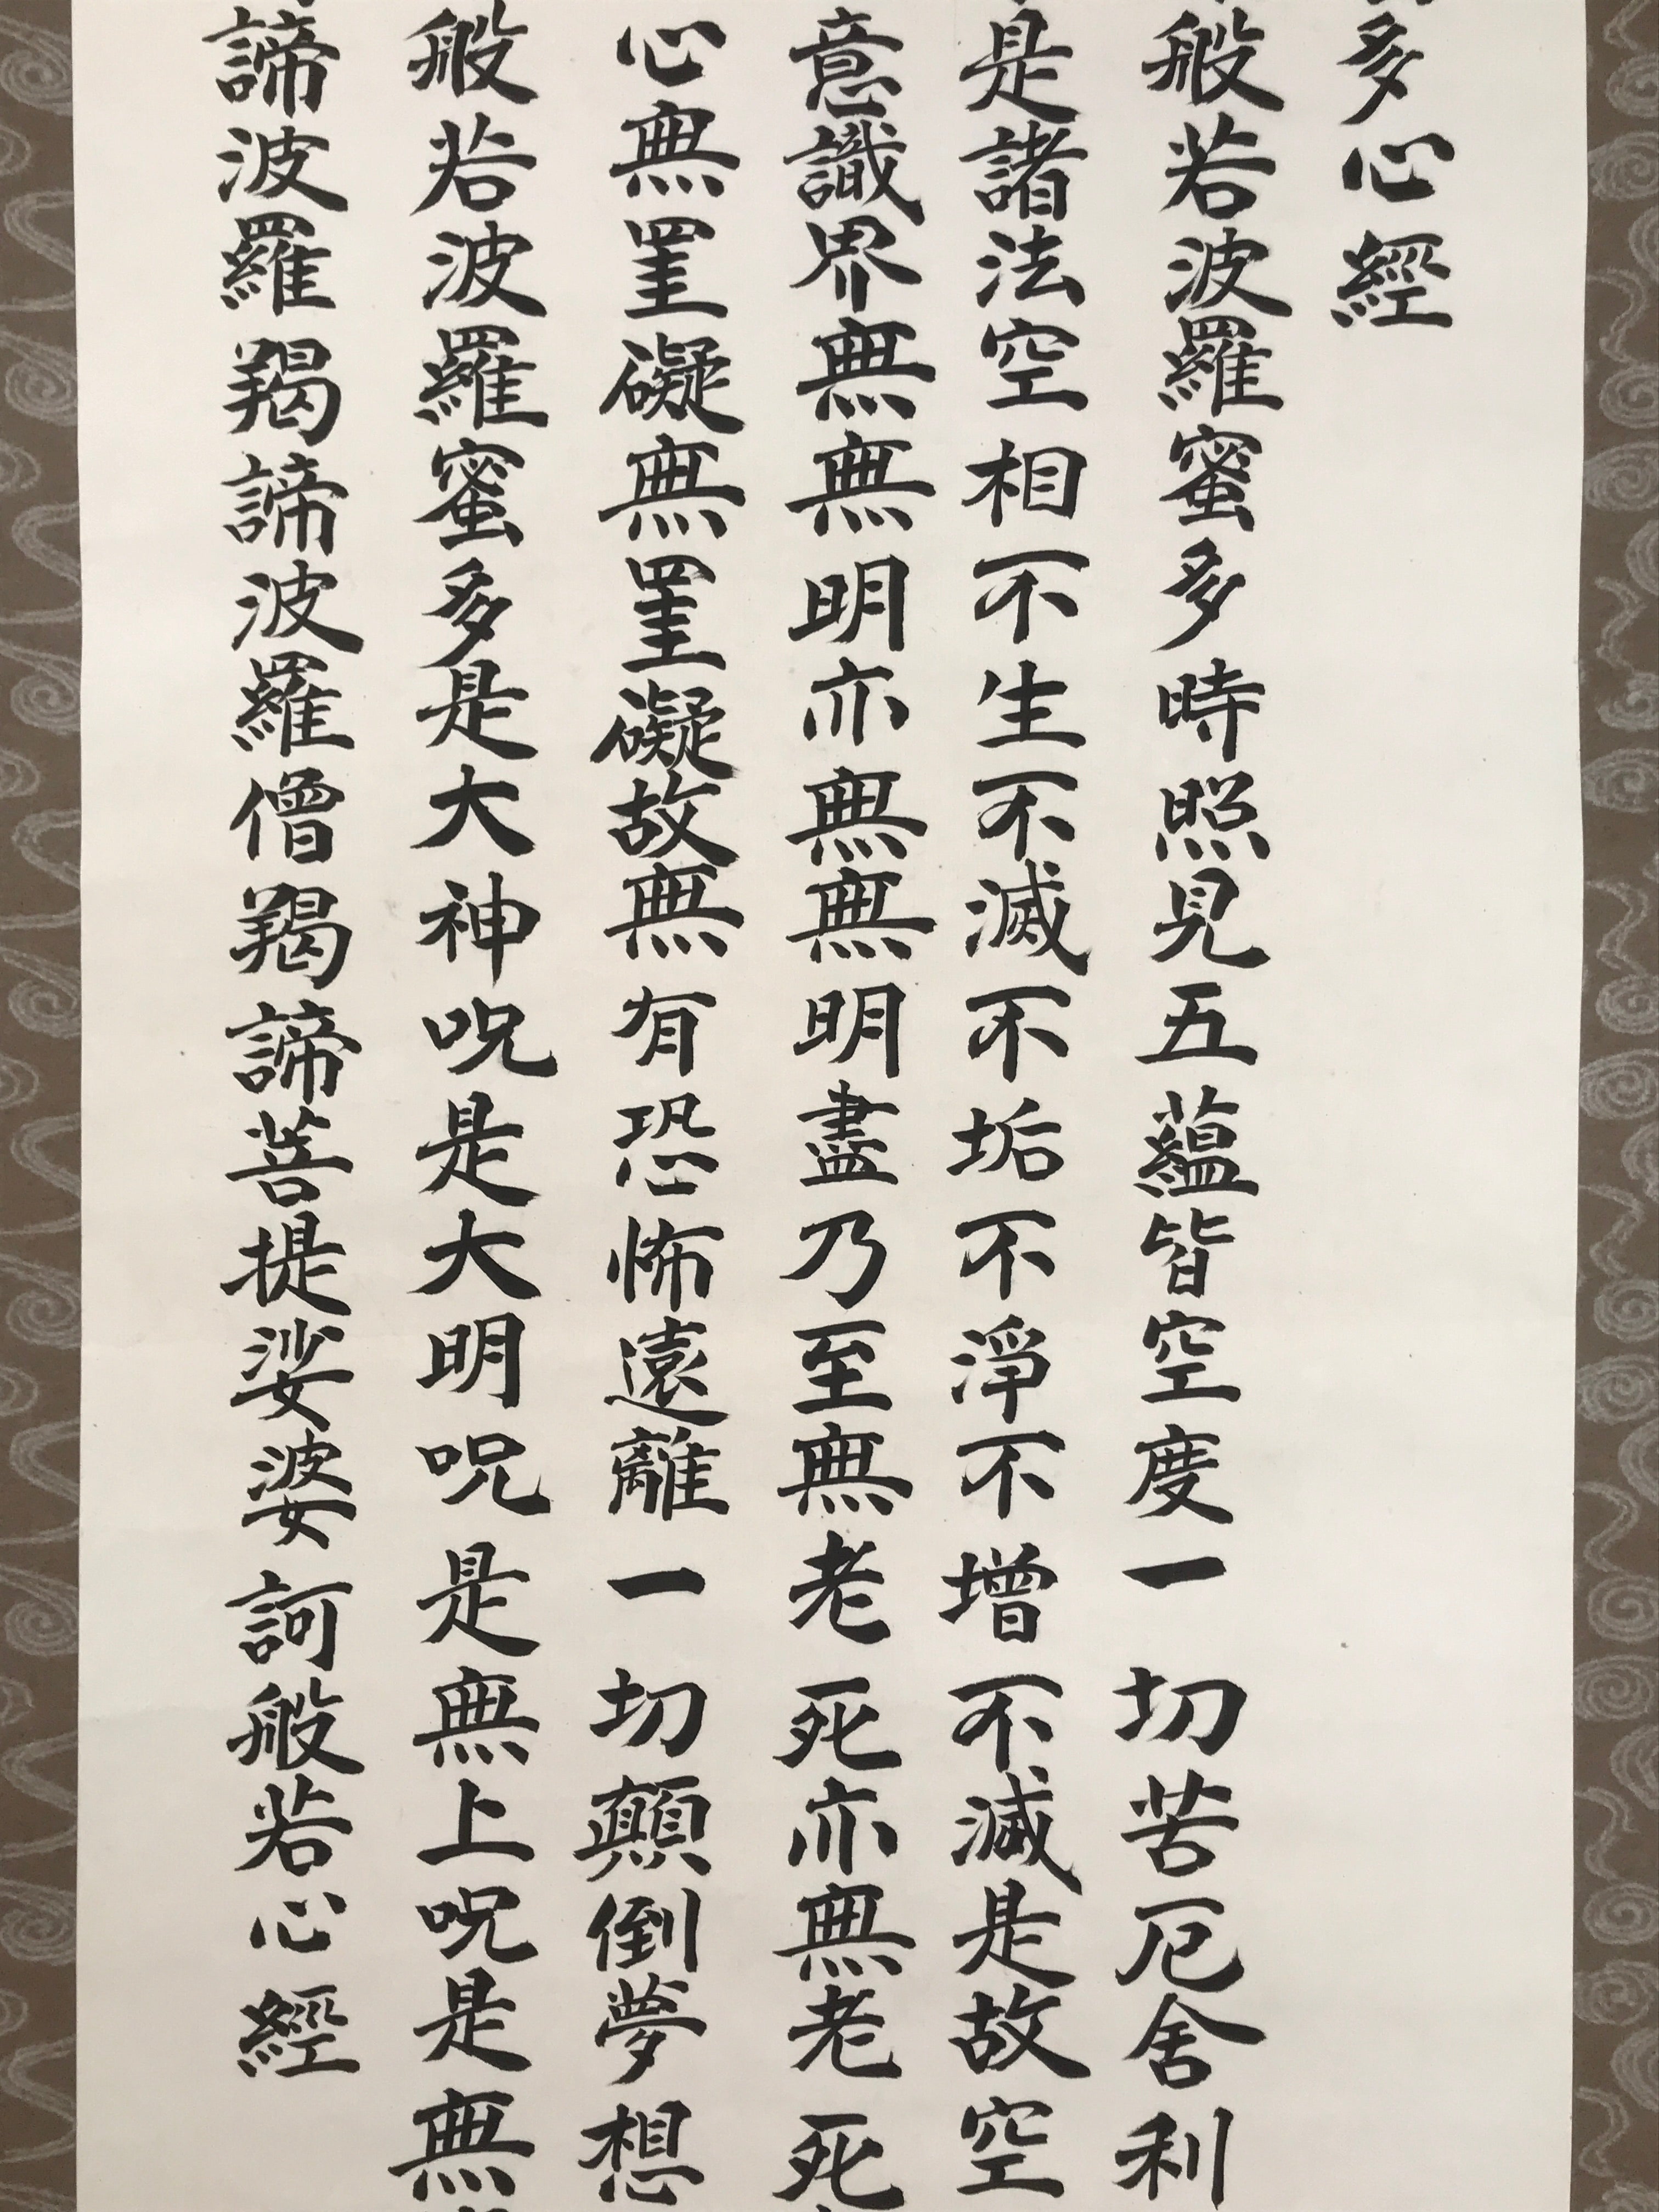 多心經
般若波羅蜜多時照見五蘊皆空度一切苦厄舍利
是諸法空相不生不滅不垢不淨不增不減是故空
意識界無無明亦無無明盡乃至無老死亦無老死
心無罣礙無罣礙故無有恐怖遠離一切顛倒夢想
般若波羅蜜多是大神呪是大明呪是無上呪是無
諦波羅羯諦波羅僧羯諦菩提娑婆訶般若心經